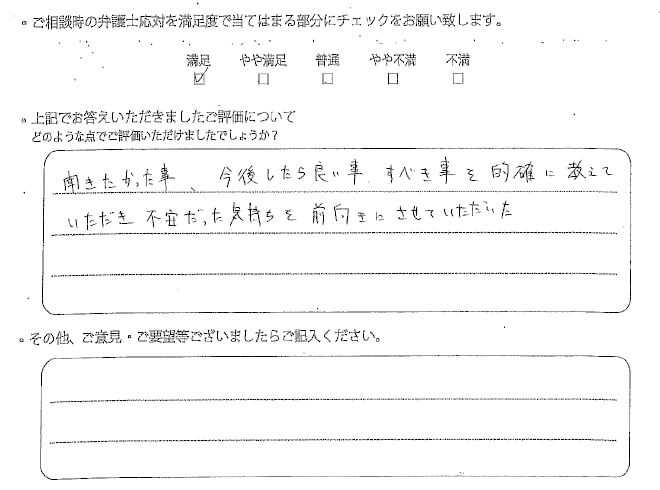 。ご相談時の弁護士応対を満足度で当てはまる部分にチェックをお願い致します。
満足 やや満足 普通 やや不満 不満
☑ □ □ □ □
。上記でお答えいただきましたご評価について
どのような点でご評価いただけましたでしょうか？
聞きたかった事、今後したら良い事、すべき事を的確に教えて
いただき不安だった気持ちを前向きにさせていただいた
。その他、ご意見・ご要望等ございましたらご記入ください。